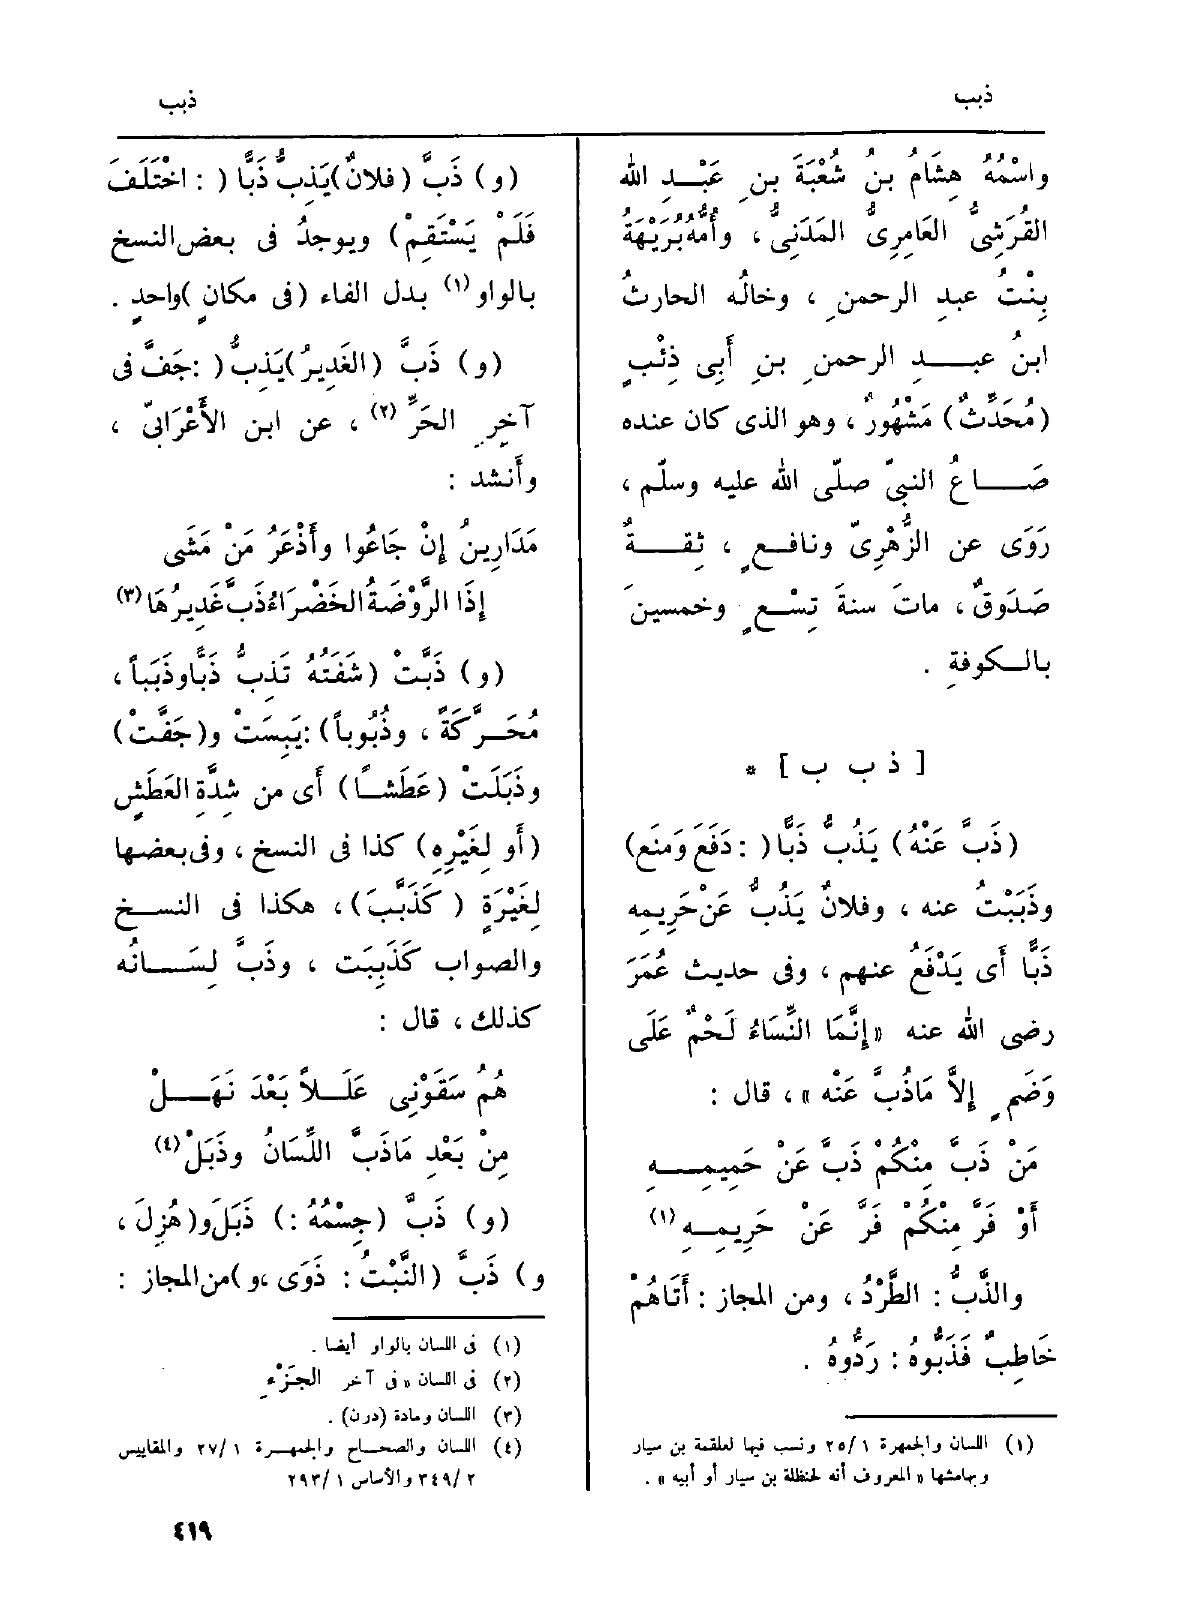 ذبب
ذبب
واسْمُهُ هِشَامُ بنُ شُعْبَةَ بنِ عَبْدِ الله
القُرَشِىُّ العَامِرِىُّ المَدَنِىُّ ، وأُمُّهُ بُرَيْهَةُ
بِنْتُ عبدِ الرحمنِ ، وخالُه الحارثُ
ابنُ عبدِ الرحمنِ بنِ أَبِى ذِئْبٍ
(مُحَدِّثٌ) مَشْهُورٌ ، وهو الذى كان عنده
صَاعُ النبىّ صلّى الله عليه وسلّم ،
رَوَى عن الزُّهْرِىّ ونافعٍ ، ثِقَةٌ
صَدُوقٌ ، ماتَ سنةَ تِسْعٍ وخمسينَ
بالكوفةِ .
[ ذ ب ب ] *
(ذَبَّ عَنْهُ) يَذُبُّ ذَبًّا ( : دَفَعَ وَمَنَع)
وذَبَبْتُ عنه ، وفلانٌ يَذُبُّ عَنْ حَرِيمِه
ذَبًّا أَى يَدْفَعُ عنهم ، وفى حديث عُمَرَ
رضى الله عنه « إِنَّمَا النِّسَاءُ لَحْمٌ عَلَى
وَضَمٍ إِلاَّ مَاذُبَّ عَنْه » ، قال :
مَنْ ذَبَّ مِنكُمْ ذَبَّ عَنْ حَمِيمِهِ
أَوْ فَرَّ مِنْكُمْ فَرَّ عَنْ حَرِيمِهِ (١)
والذَّبُّ : الطَّرْدُ ، ومن المجاز : أَتَاهُمْ
خَاطِبٌ فَذَبُّوهُ : رَدُّوهُ .
(١) اللسان والجمهرة ١ /٢٥ ونسب فيها لعلقمة بن سيار
وبهامشها « المعروف أنه لحنظلة بن سيار أو أبيه » .
(و) ذَبَّ (فلانٌ) يَذِبُّ ذَبًّا ( : اخْتَلَفَ
فَلَمْ يَسْتَقِمْ) ويوجدُ فى بعض النسخ
بالواو (١) بدل الفاء (فى مكانٍ) واحدٍ .
(و) ذَبَّ (الغَدِيرُ) يَذِبُّ ( : جَفَّ فى
آخِرِ الحَرِّ (٢) ، عن ابن الأَعْرَابىّ ،
وأَنشد :
مَدَارِينُ إِنْ جَاعُوا وأَذْعَرُ مَنْ مَشَى
إِذَا الرَّوْضَةُ الخَضْرَاءُ ذَبَّ غَدِيرُهَا (٣)
(و) ذَبَّتْ (شَفَتُهُ تَذِبُّ ذَبًّا وذَبَباً ،
مُحَرَّكَةً ، وذُبُوباً) : يَبِسَتْ و(جَفَّتْ)
وذَبَلَتْ (عَطَشاً) أَى من شِدَّةِ العَطَشِ
(أَو لِغَيْرِهِ) كذا فى النسخ ، وفى بعضها
لِغَيْرَةٍ ( كَذَبَّبَ) ، هكذا فى النسخ
والصواب كَذَبِبَت ، وذَبَّ لِسَانُه
كذلك ، قال :
هُمُ سَقَوْنِى عَلَلاً بَعْدَ نَهَلْ
مِنْ بَعْدِ مَاذَبَّ اللِّسَانُ وذَبَلْ (٤)
(و) ذَبَّ (جِسْمُهُ : ) ذَبَلَ و(هُزِلَ ،
و) ذَبَّ (النَّبْتُ : ذَوَى ، و) من المجاز :
(١) فى اللسان بالواو أيضا .
(٢) فى اللسان « فى آخر الجَزْءِ
(٣) اللسان ومادة (درن) .
(٤) اللسان والصحاح والجمهرة ١ /٢٧ والمقاييس
٢ /٣٤٩ والأساس ١ /٢٩٣
٤١٩